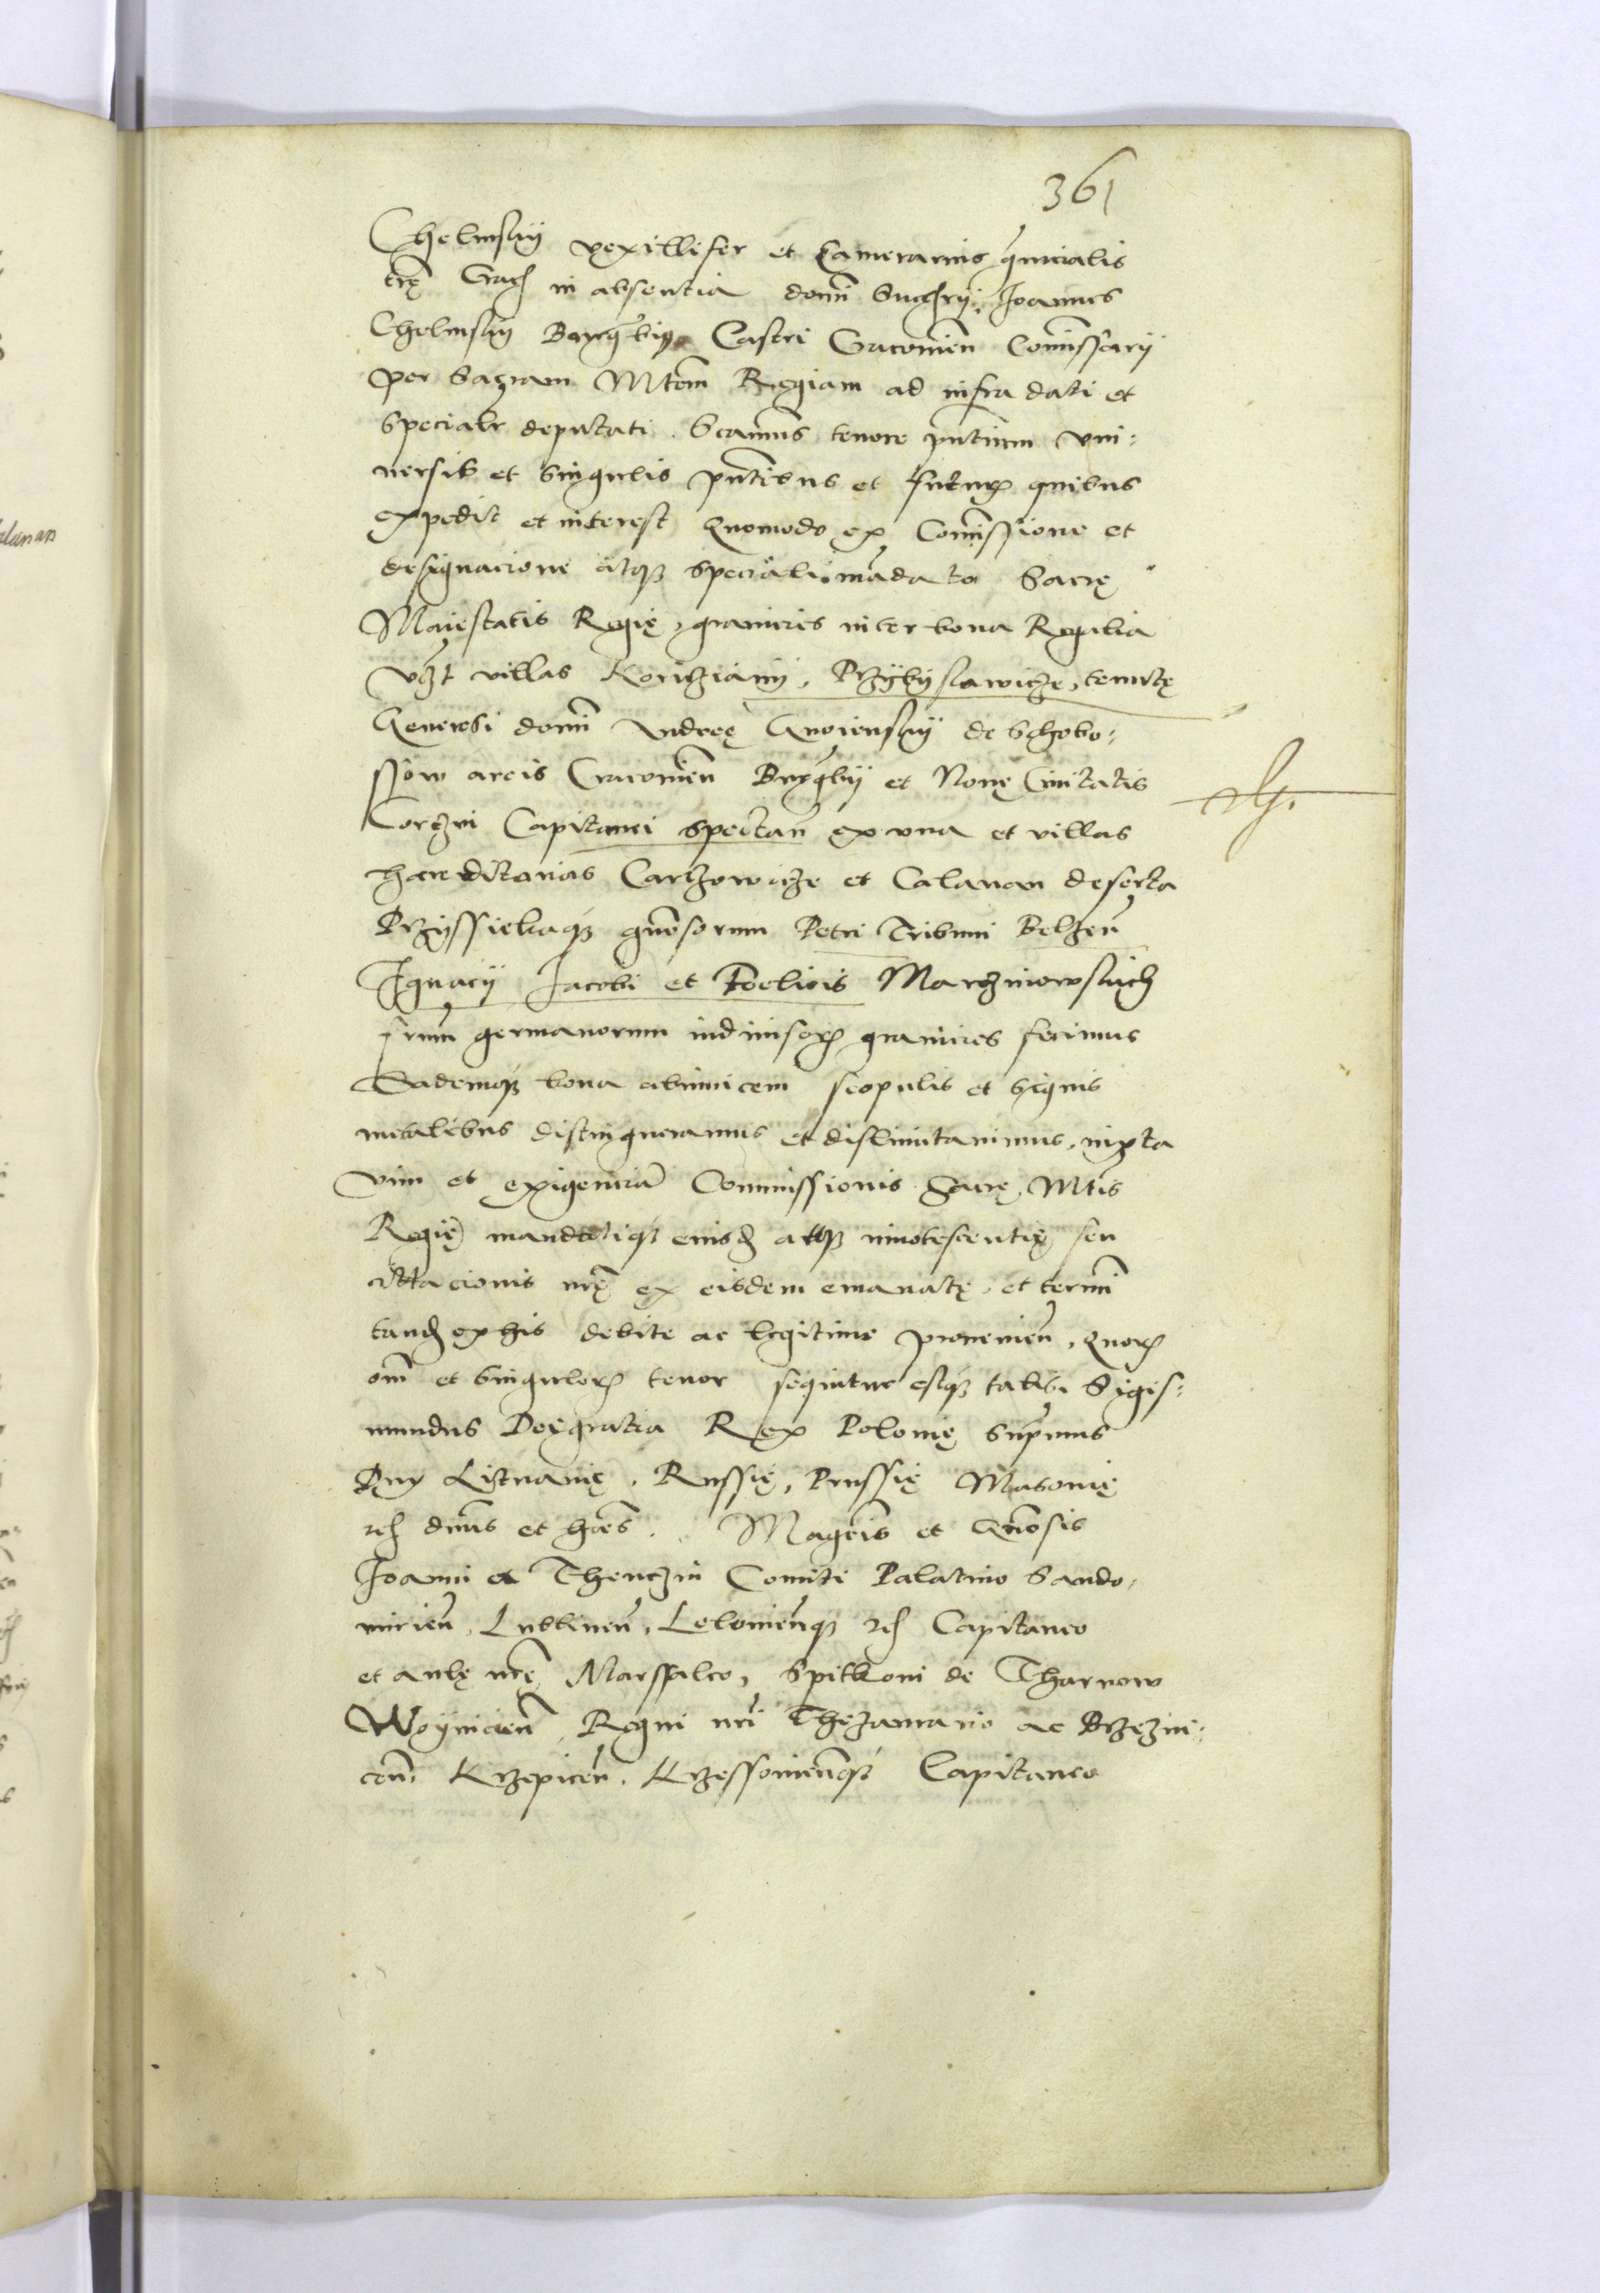 361
Chelmsky vexillifer et Camerarius granicialis
trę Crac̃ in absentia domĩ Succ̃rij Joannes
Chelmsky Burgrabius Castri Cracovien̄ Com̃issarij
per Sacram Mtem̃ Regiam ad infra dati et
specialr deputati. Scimus tenore pñtium vni:
versis et singulis pñtibus et futuris quibus
expedit et interest Quomodo ex Com̃issione et
designacione atq̃ speciali mãdato Sacrę
Maiestatis Regię, granicies inter bona Regalia
vz̃t villas Konicziany, Przybyslawicze, tenutę
Generosi domĩ Andreę Gnoiensky de
ssow arcis Cracovien̄ Burgr̃bij et Nouę Ciuitatis
Corczin Capitanei spectan̄ ex vna et villas
haereditarias Carczowicze et Calanan deserta
Przyssiekaq̃ gñosorum Petri Tribuni Belzen̄
Ignacij Jacobi et Foelicis Marczinowskich
fr̃um germanorum indiuisorũ granicies fecimus
Eademq̃ bona abinuicem scopulis et signis
metalibus distinqueramus et dislimitauimus, iuxta
vim et exigenciã Commissionis Sacrę Mtis
Regię mandatiq̃ eiusd̃ atq̃ innotescentię seu
cittacionis nrę ex eisdem emanatę, et termĩ
tand̃ ex his debite ac legitime provenien̄, Quorũ
om̃ et singulorũ tenor sequitur estq̃ talis: Sigis:
mundus Dei gratia Rex Polonię Supr̃mus
Dux Lithuanię, Russię, Prussię Masouię
etc̃ dñus et hęres. Magcis et Gñosis
Joanni a Thenczin Comiti Palatino Sando:
mirien̄, Lublinen̄, Lelovien̄q̃ etc̃ Capitaneo
et aulę nrę Marssalco, Spitkoni de Tharnow
Woynicien̄, Regni nri Thezaurario ac Brzezni:
cen̄, Krzepicen̄, Krzessovien̄q̃ Capitaneo